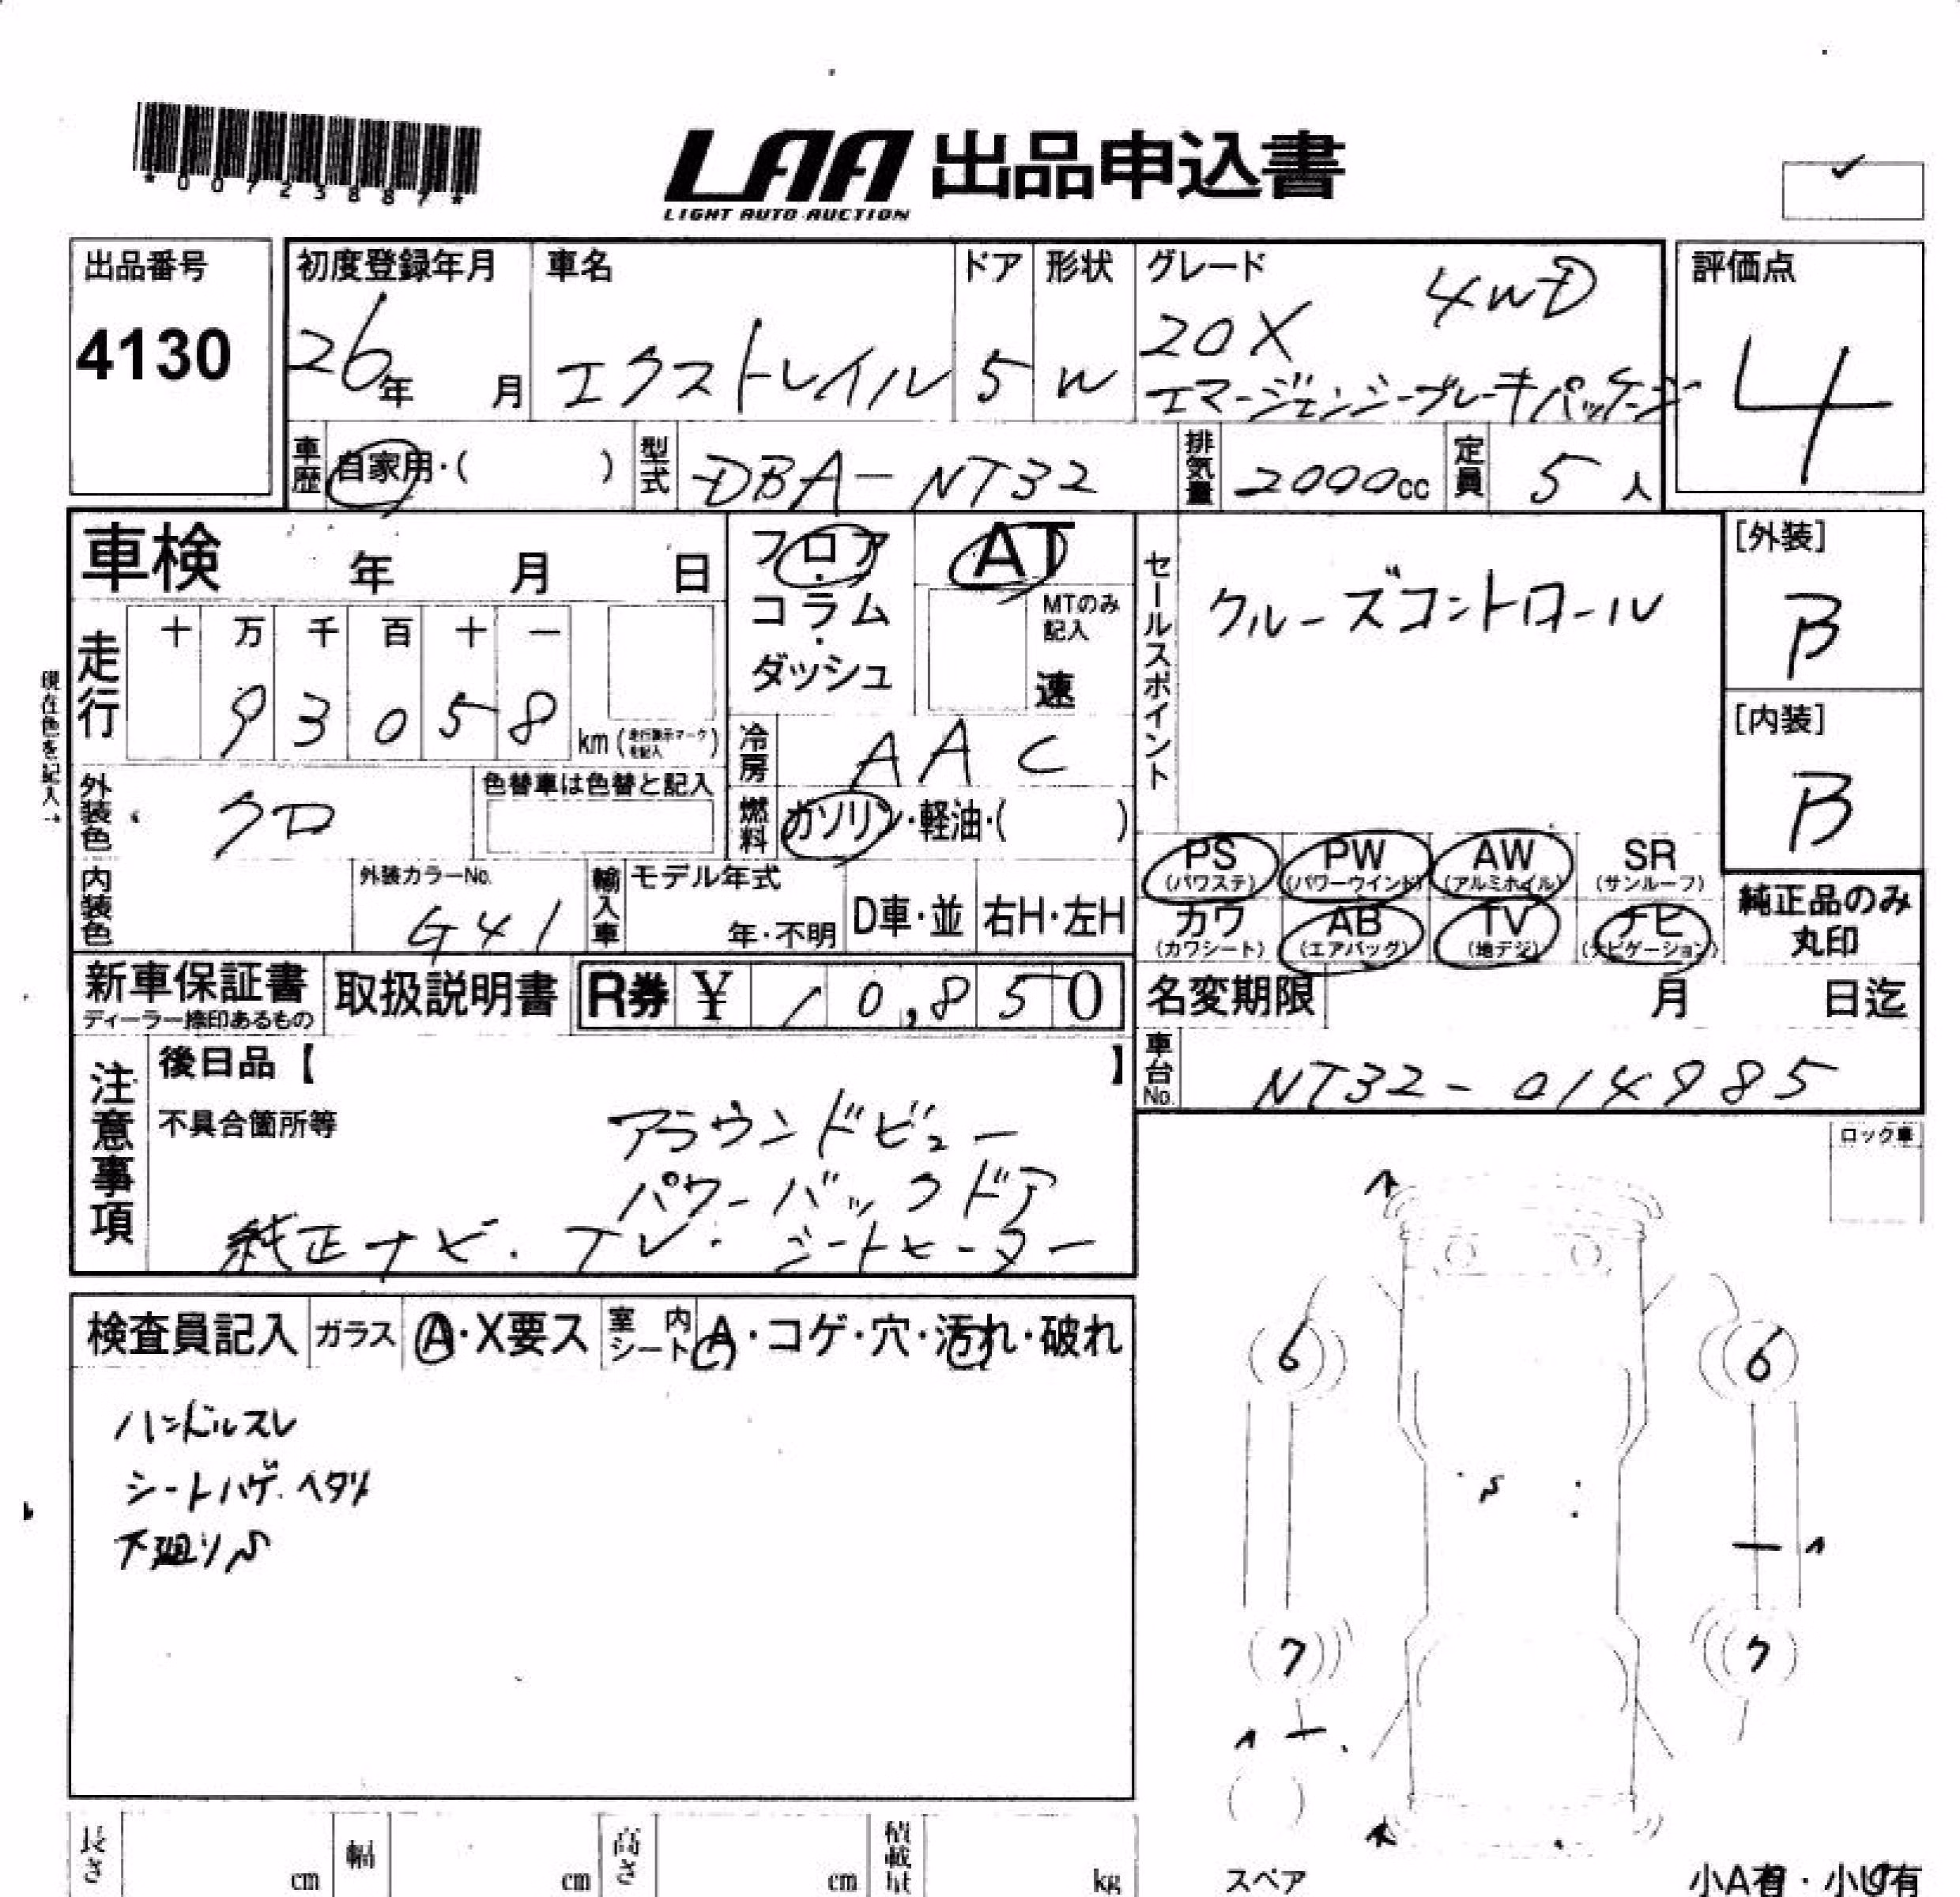 *00723887*
LAA 出品申込書
LIGHT AUTO AUCTION
出品番号
4130
初度登録年月
26年 月
車名
エクストレイル
ドア
5
形状
W
グレード
20X 4WD
エマージェンシーブレーキパッケージ
評価点
4
車歴 自家用・( )
型式 DBA-NT32
排気量 2000cc
定員 5人
車検 年 月 日
フロア
・
コラム
・
ダッシュ
AT
MTのみ
記入
速
セールスポイント
クルーズコントロール
[外装]
B
[内装]
B
現在色を記入→
走行
十 万 千 百 十 一
9 3 0 5 8 km(走行表示マークを記入)
冷房 AAC
外装色 クロ
色替車は色替と記入
燃料 ガソリン・軽油・( )
内装色
外装カラーNo.
G41
輸入車
モデル年式
年・不明
D車・並
右H・左H
PS
(パワステ)
PW
(パワーウインド)
AW
(アルミホイル)
SR
(サンルーフ)
カワ
(カワシート)
AB
(エアバッグ)
TV
(地デジ)
ナビ
(ナビゲーション)
純正品のみ
丸印
新車保証書
ディーラー捺印あるもの
取扱説明書
R券 ¥ 10,850
名変期限 月 日迄
車台No. NT32-014985
注意事項
後日品【 】
不具合箇所等
アラウンドビュー
パワーバックドア
純正ナビ. TV. シートヒーター
ロック車
検査員記入 ガラス A・X要ス 室内シート A・コゲ・穴・汚れ・破れ
ハンドルスレ
シートハゲ.ヘタリ
下廻りS
6 6
S
1
7 7
1
長さ cm 幅 cm 高さ cm 積載量 kg
スペア
小A有・小U有